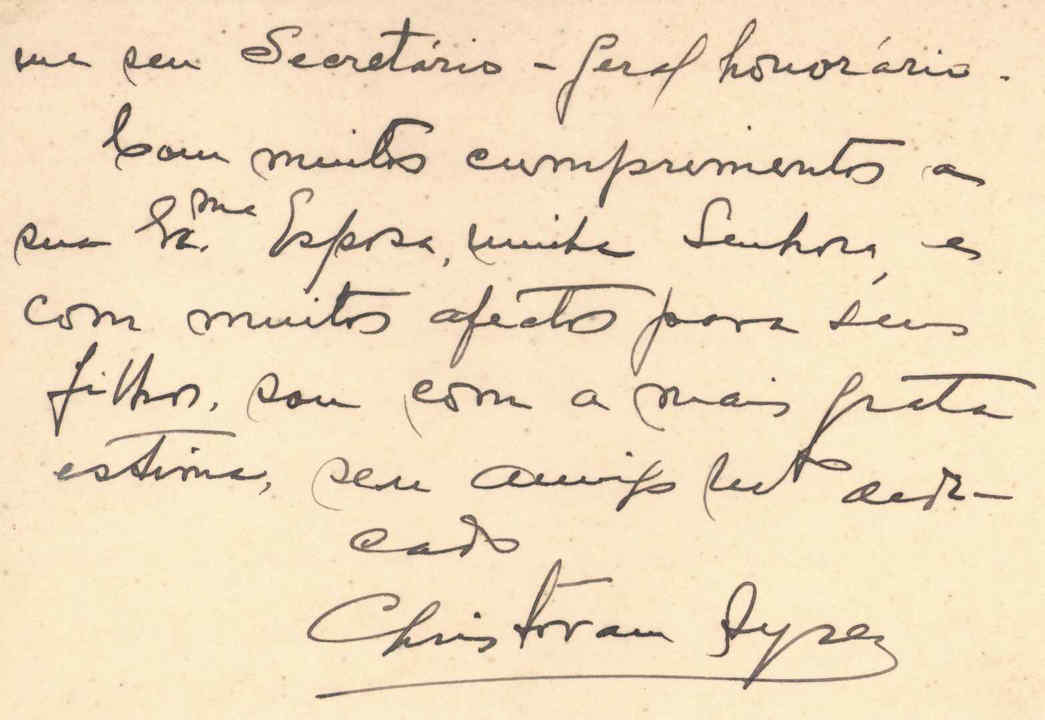 me seu Secretário - Geral honorário.
Com muitos cumprimentos a
sua Exma. Esposa, minha Senhora, e
com muitos afectos para seus
filhos, sou com a mais grata
estima, seu amigo mto dedi-
cado
Christovam Ayres